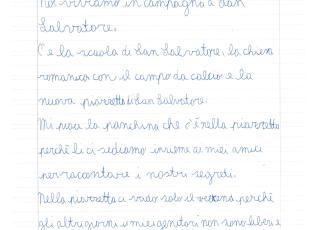 Noi viviamo in campagna a San
Salvatore.
C'è la scuola di San Salvatore, la chiesa
romanica con il campo da calcio e la
nuova piazzetta di San Salvatore.
Mi piace la panchina che c'è nella piazzetta
perché lì ci sediamo insieme ai miei amici
per raccontare i nostri segreti.
Nella piazzetta ci vado solo il perché
gli altri giorni i miei genitori non sono liberi e